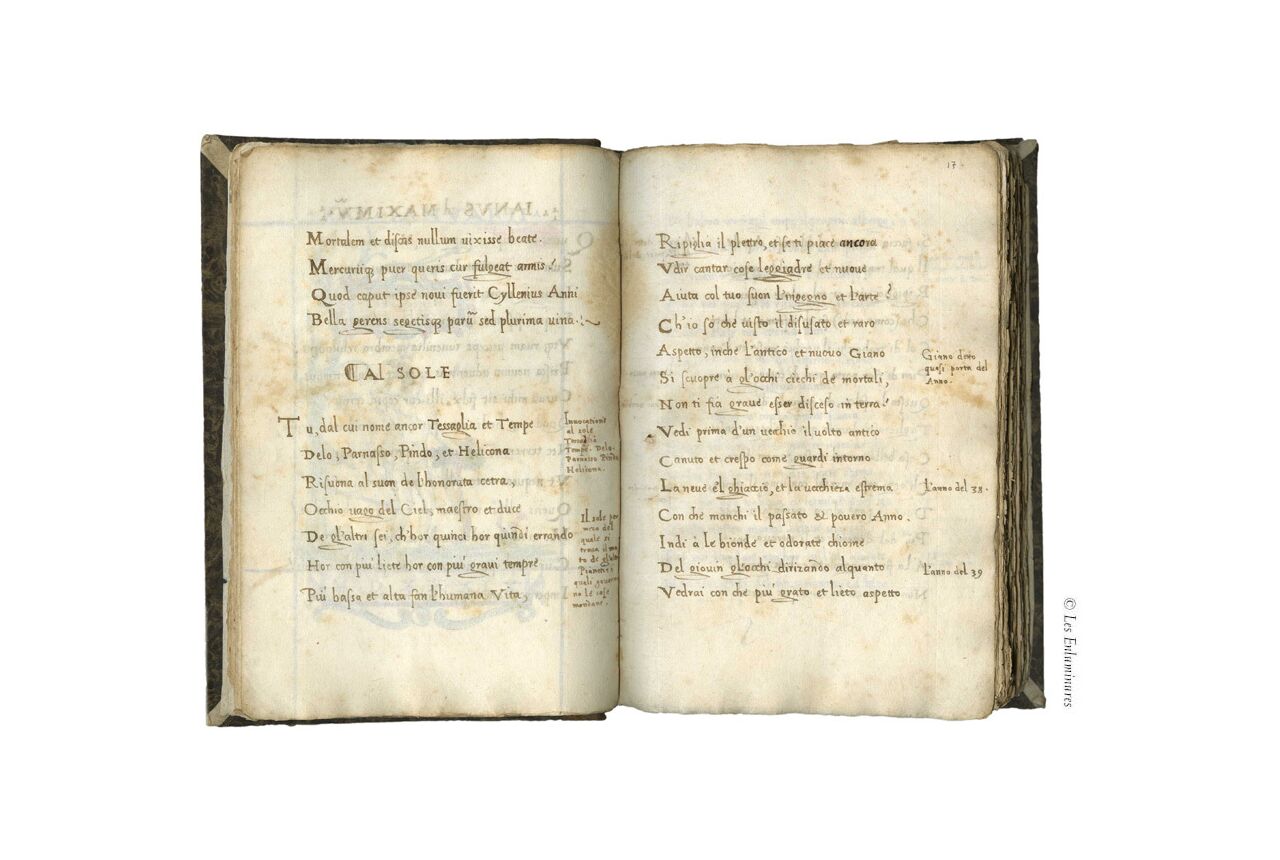 Mortalem et discas nullum uixisse beate.
Mercurijq; puer queris cur fulgeat armis?
Quod caput ipse noui fuerit Cyllenius Anni
Bella gerens segetisq; parũ sed plurima uina.
AL SOLE
Tu, dal cui nome ancor Tessaglia et Tempe
Delo, Parnasso, Pindo, et Helicona
Risuona al suon de l'honorata cetra,
Occhio uago del Ciel, maestro et duce
De gl'altri sei, ch'hor quinci hor quindi errando
Hor con piu' liete hor con piu' graui tempre
Piu' bassa et alta fan l'humana Vita,
Inuocatione
al sole
Tessaglia
Tempe. Delo.
Parnasso Pindo
Helicona.
Il sole per
mezo del
quale si
Pianeti i
quali gouerna
no le cose
mondane.
17
Ripiglia il plettro, et se ti piace ancora
Vdir cantar cose leggiadre et nuoue
Aiuta col tuo suon l'ingegno et l'arte?
Ch'io so che uisto il disusato et raro
Aspetto, inche l'antico et nuouo Giano
Si scuopre à gl'occhi ciechi de mortali,
Non ti fia graue esser disceso in terra?
Vedi prima d'un uechio il uolto antico
Canuto et crespo come guardi intorno
La neue e'l ghiaccio, et la uecchieza estrema
Con che manchi il passato & pouero Anno.
Indi à le bionde et odorate chiome
Del giouin gl'occhi dirizando alquanto
Vedrai con che piu' grato et lieto aspetto
Giano detto
quasi porta del
Anno.
L'anno del 38.
L'anno del 39
© Les Enluminures